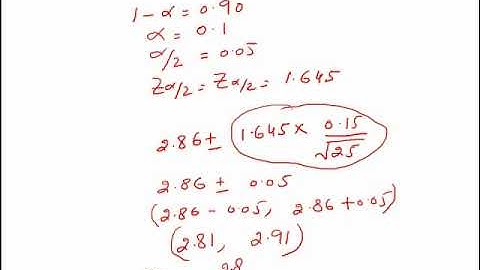 1 - α = 0.90
α = 0.1
α/2 = 0.05
Zα/2 = Zα/2 = 1.645
2.86 ± 1.645 × 0.15/√25
2.86 ± 0.05
(2.86 - 0.05, 2.86 + 0.05)
(2.81, 2.91)